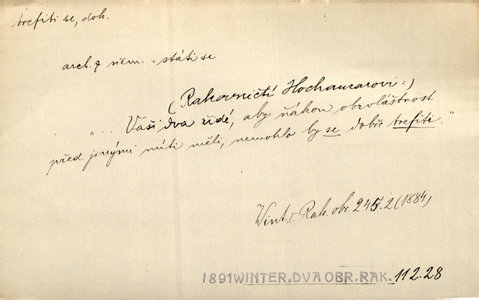 trefiti se, dok.
arch. z něm. - státi se
(Rakovničtí Hochauzarovi:)
"... Vaši dva žďé, aby ňákou obzvláštnost
před jinými míti měli, nemohlo by se dobř trefiti."
Wint. Rak. obr. 245.2 (1884)
1891 WINTER. DVA OBR. RAK. 112.28